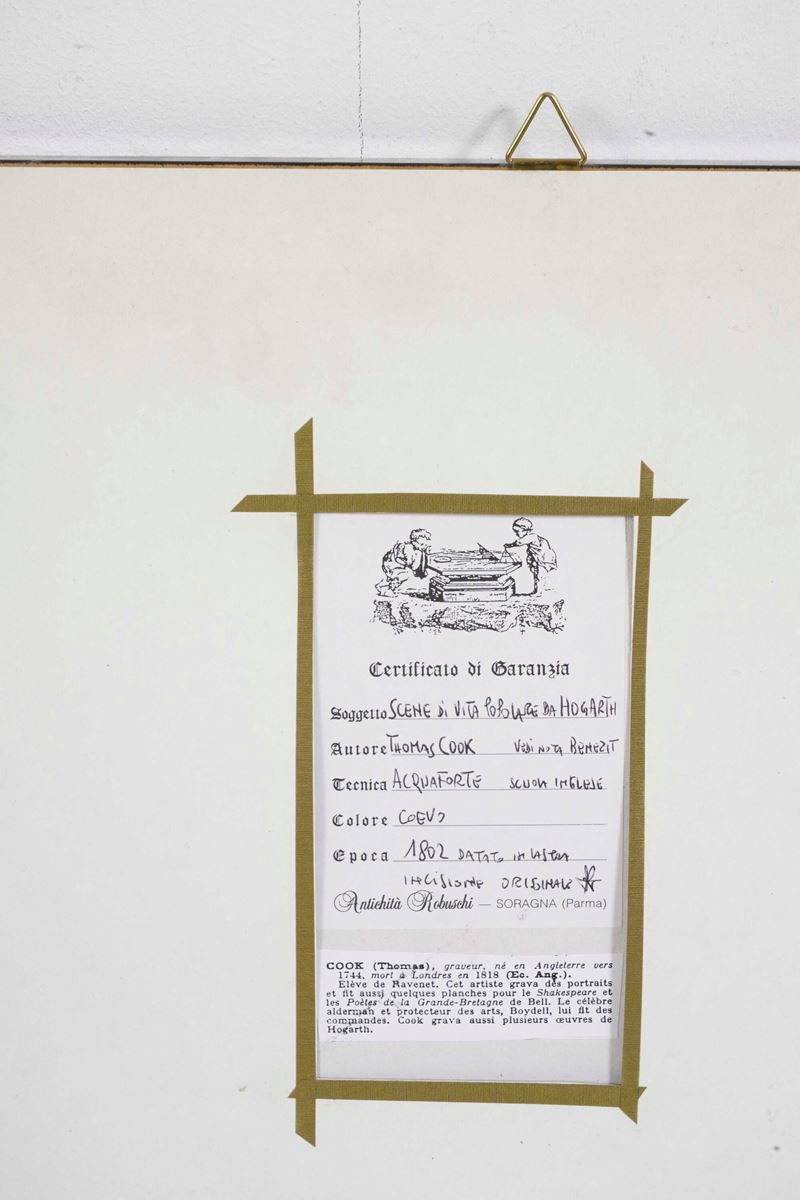 Certificato di Garanzia
Soggetto SCENE DI VITA POPOLARE DA HOGARTH
Autore THOMAS COOK VEDI NOTA BENEZIT
Tecnica ACQUAFORTE SCUOLA INGLESE
Colore COEVO
Epoca 1802 DATATO IN LASTRA
INCISIONE ORIGINALE
Antichità Robuschi — SORAGNA (Parma)
COOK (Thomas), graveur, né en Angleterre vers
1744, mort à Londres en 1818 (Ec. Ang.).
Elève de Ravenet. Cet artiste grava des portraits
et fit aussi quelques planches pour le Shakespeare et
les Poètes de la Grande-Bretagne de Bell. Le célèbre
alderman et protecteur des arts, Boydell, lui fit des
commandes. Cook grava aussi plusieurs œuvres de
Hogarth.